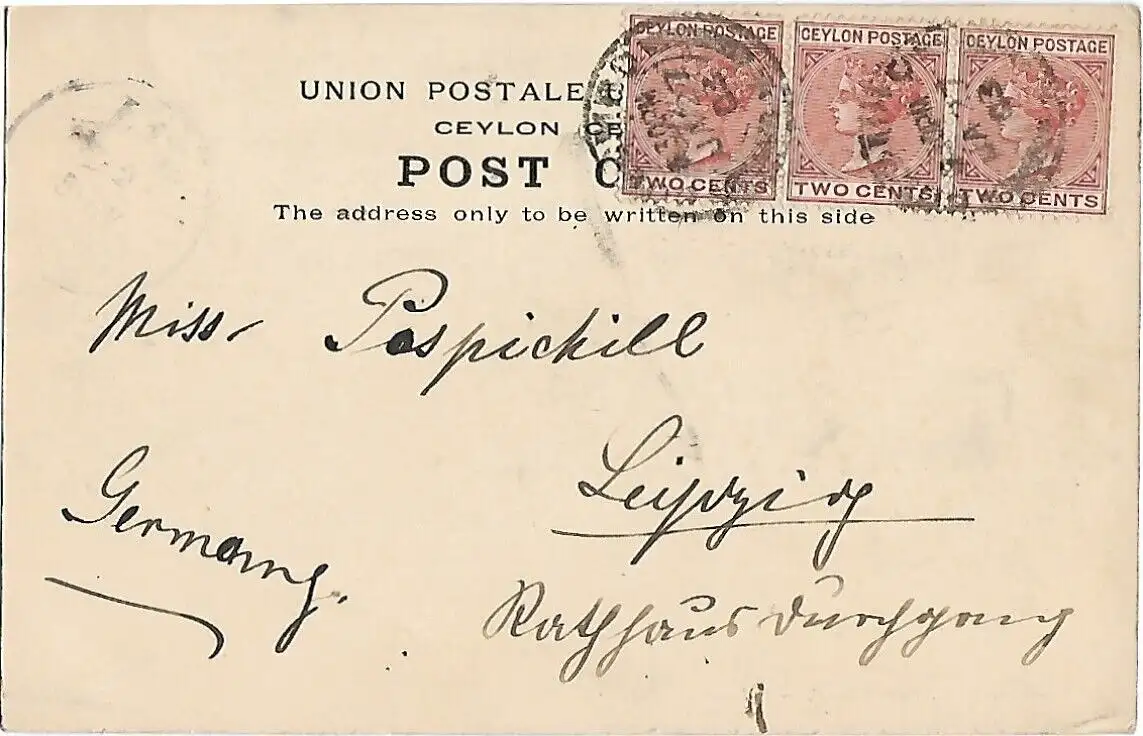 CEYLON POSTAGE CEYLON POSTAGE CEYLON POSTAGE
TWO CENTS TWO CENTS TWO CENTS
UNION POSTALE
CEYLON
POST C
The address only to be written on this side
Miss Pospichill
Leipzig
Germany.
Rathhaus Durchgang